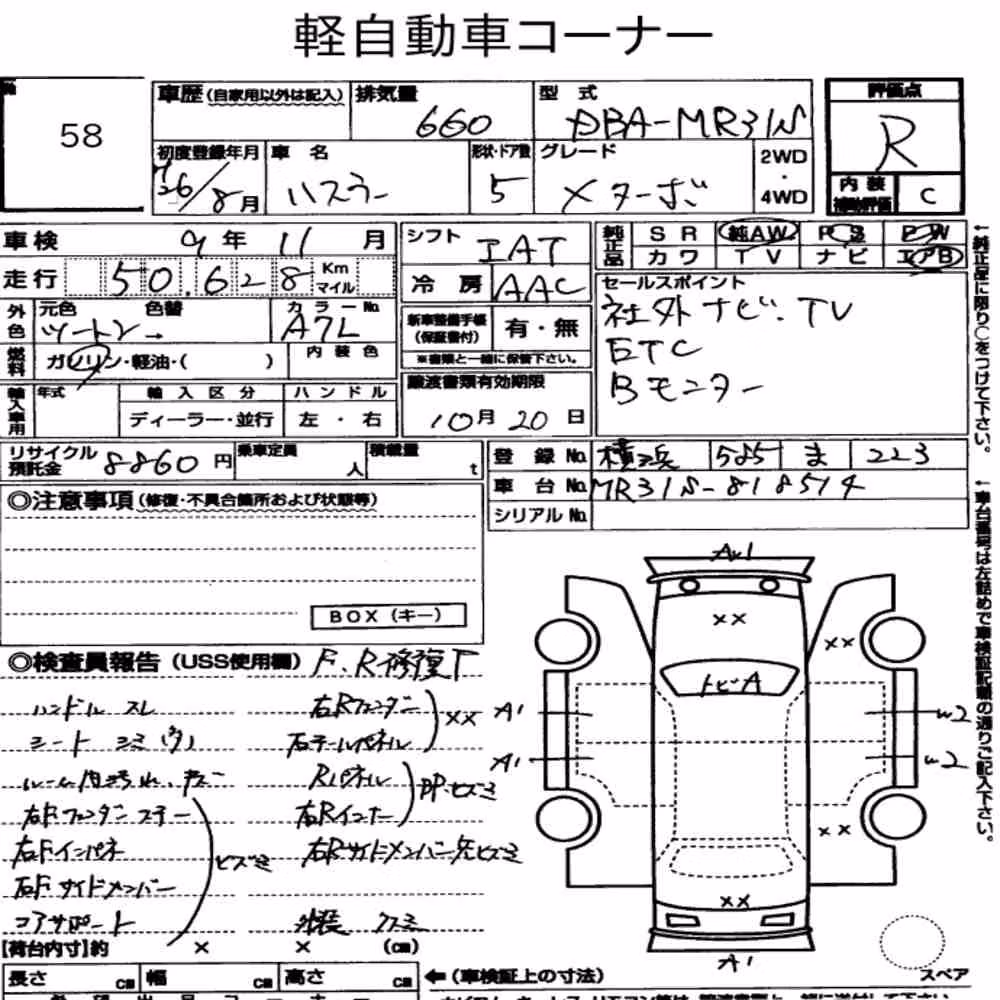 軽自動車コーナー
58
車歴 (自家用以外は記入) 排気量 型式 評価点
660 DBA-MR31S R
初度登録年月 車名 形状・ドア数 グレード 2WD・4WD
H26/8月 ハスラー 5 Xターボ
内装補助評価 C
車検 9年 11月
走行 50,628 Km マイル
シフト IAT
冷房 AAC
純正品 SR 純AW PS PW
カワ TV ナビ エアB
外色 元色 色替 カラーNo.
ツートン → A7L
燃料 ガソリン・軽油・( ) 内装色
新車整備手帳(保証書付) 有・無
※書類と一緒に保管下さい。
セールスポイント
社外ナビ.TV
ETC
Bモニター
輸入車用 年式 輸入区分 ハンドル
ディーラー・並行 左・右
譲渡書類有効期限
10月20日
リサイクル預託金 8860円 乗車定員 人 積載量 t
登録No. 横浜 585 ま 223
車台No. MR31S-818514
シリアルNo.
◎注意事項 (修復・不具合箇所および状態等)
BOX(キー)
↑純正品に限り○をつけて下さい。
↑車台番号は左詰めで車検証記載の通りご記入下さい。
◎検査員報告 (USS使用欄) F.R修復下
ハンドル スレ
シート シミ(ウ)
ルーム内汚れ、キズ
右Fフェンダーステー
右Fインパネ
右Fサイドメンバー
コアサポート
ヒズミ
右Rフェンダー
右テールパネル
××
Rパネル
右Rインナー
PP.ヒズミ
右Rサイドメンバー先ヒズミ
外装 クスミ
AW1
××
××
トビA
A1
W2
A1
W2
××
××
A1
スペア
[荷台内寸]約 × × (cm)
長さ cm 幅 cm 高さ cm
←(車検証上の寸法)